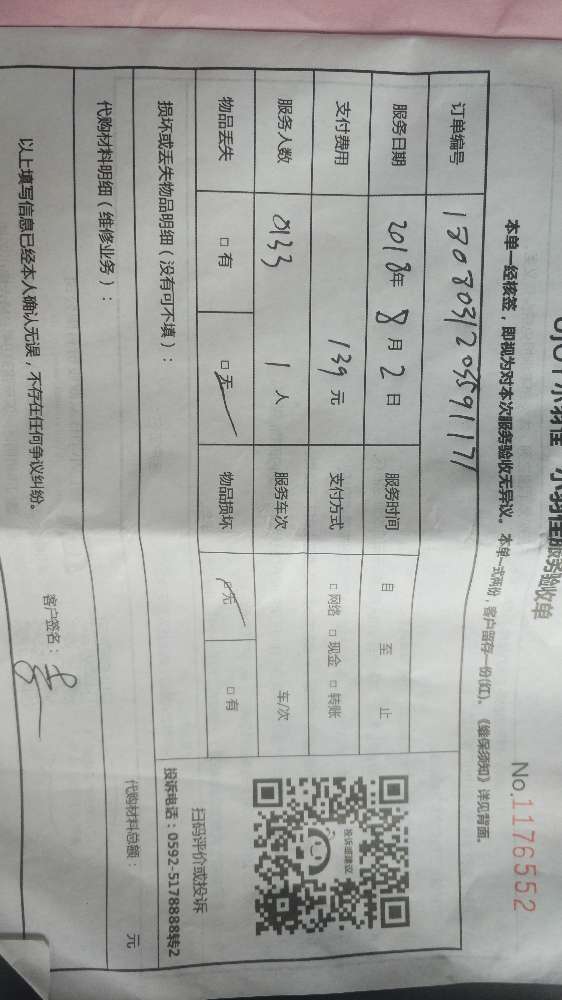 小羽佳服务验收单
No.1176552
本单一经核签，即视为对本次服务验收无异议。本单一式两份，客户留存一份(红)。《维保须知》详见背面。
订单编号
服务日期 2018年 8月 2日 服务时间 自 至 止
支付费用 139元 支付方式 □网络 □现金 □转账
服务人数 0133 1人 服务车次 车/次
物品丢失 □有 □无 物品损坏 □无 □有
损坏或丢失物品明细（没有可不填）：
投诉或建议
扫码评价或投诉
投诉电话：0592-5178888转2
代购材料明细（维修业务）：
代购材料总额： 元
以上填写信息已经本人确认无误，不存在任何争议纠纷。
客户签名：